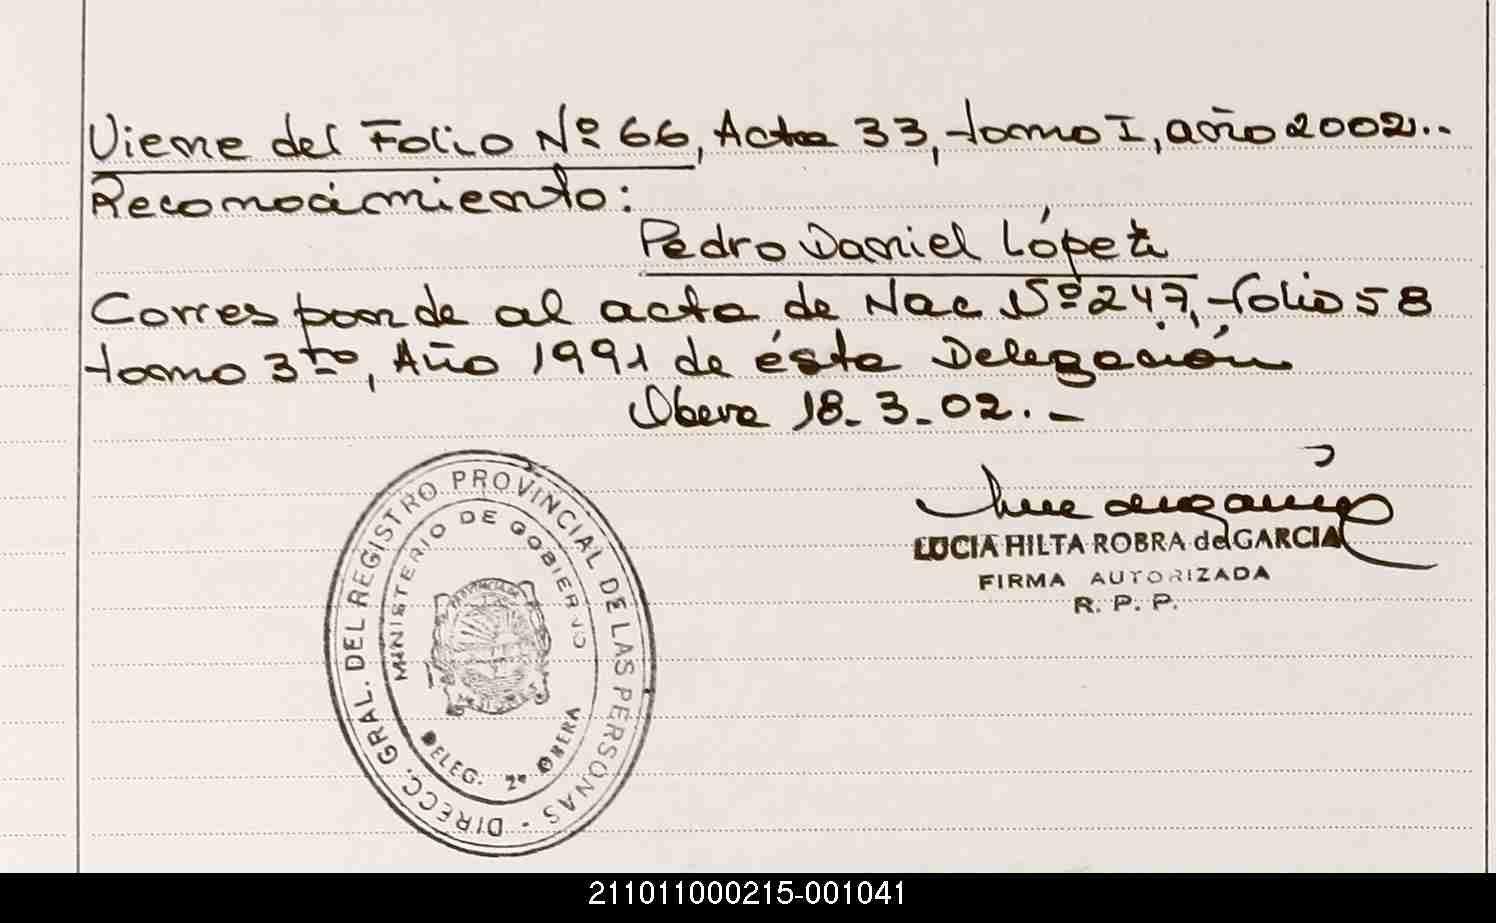 Viene del Folio Nº 66, Acta 33, tomo I, año 2002..
Reconocimiento:
Pedro Daniel López
Corresponde al acta de Nac Nº 247, folio 58
tomo 3ro, Año 1991 de ésta Delegación
Obera 18-3-02.-
LUCIA HILTA ROBRA de GARCIA
FIRMA AUTORIZADA
R. P. P.
DIRECC. GRAL. DEL REGISTRO PROVINCIAL DE LAS PERSONAS -
MINISTERIO DE GOBIERNO
DELEG. 2º OBERA
211011000215-001041